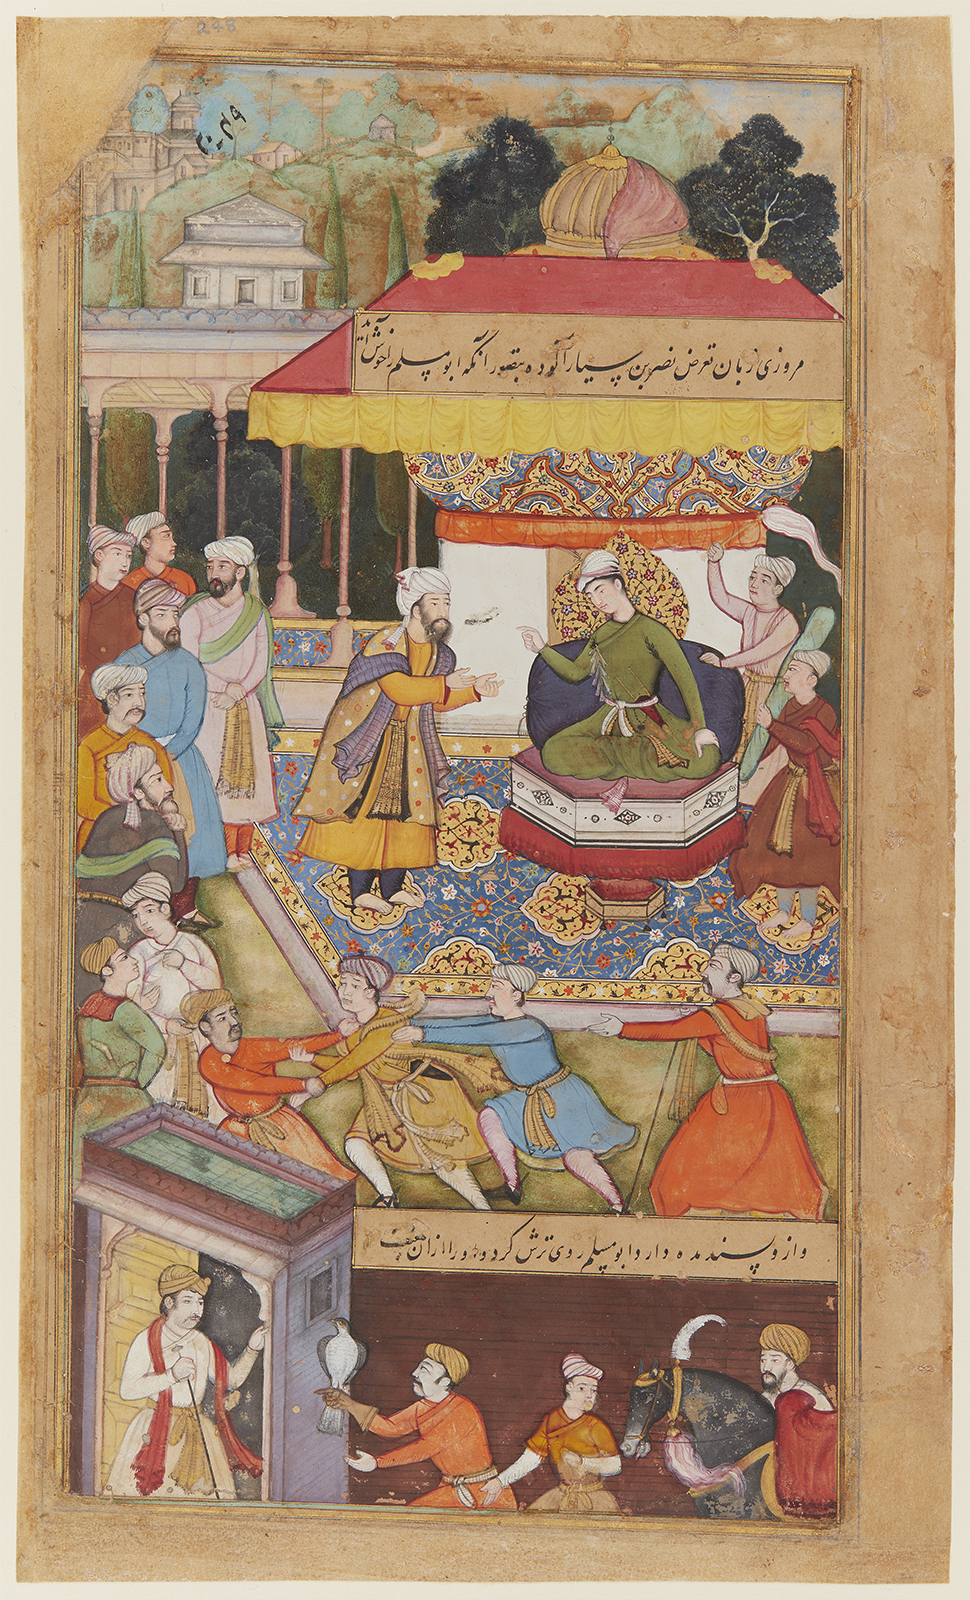 248
مروزی زبان تعرض نصر بن سیار آلوده بتصور آنکه ابومسلم را خوش آید
و ازو پسندیده دارد ابومسلم روی ترش کرد و ورا ازان